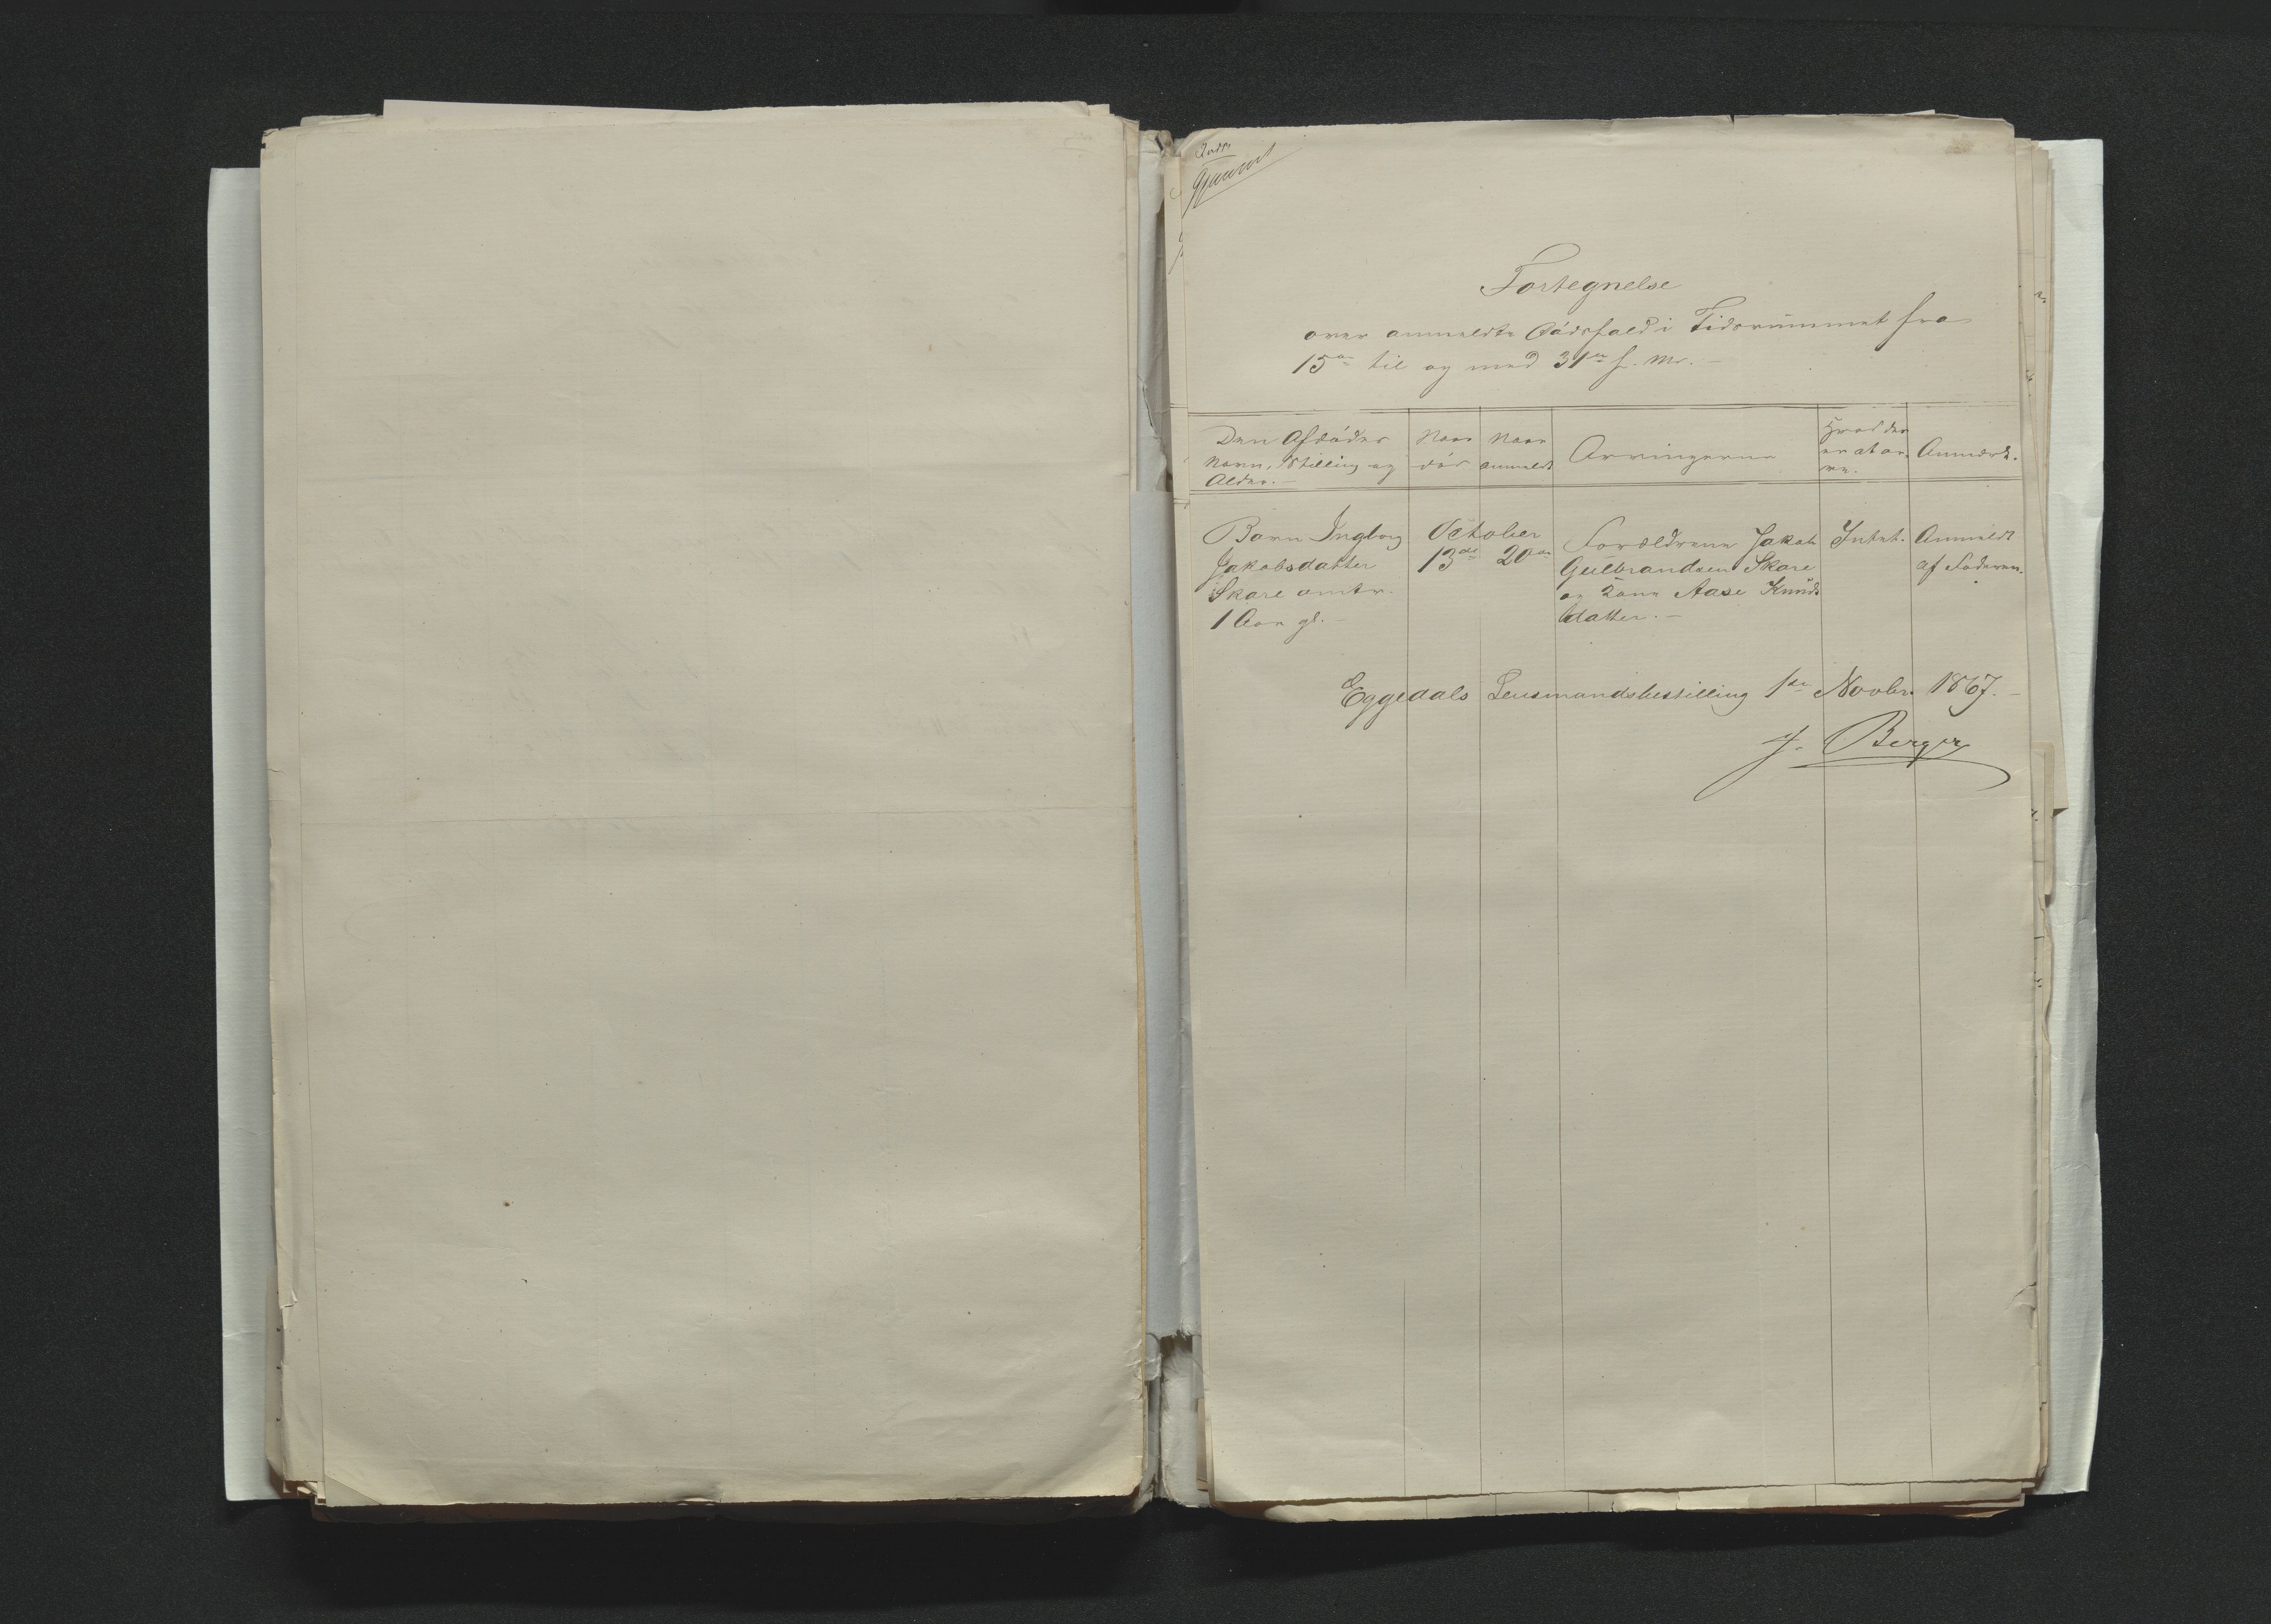 Fortegnelse
over anmeldte Dödsfald i Tidsrummet fra
15de til og med 31te f. M. –
Den Afdödes
Navn, Stilling og
Alder. –
Naar
död
Naar
anmeldt
Arvingerne
Hvad der
er at ar-
ve.
Anmærk.
Barn Ingborg
Jakobsdatter
Skare omtr.
1 Aar gl. –
October
13de
20de
Forældrene Jakob
Gulbrandsen Skare
og Kone Aase Knuds
datter. –
Intet.
Anmeldt
af Faderen.
Eggedals Lensmandsbestilling 1ste Novbr. 1867. –
J. Berger